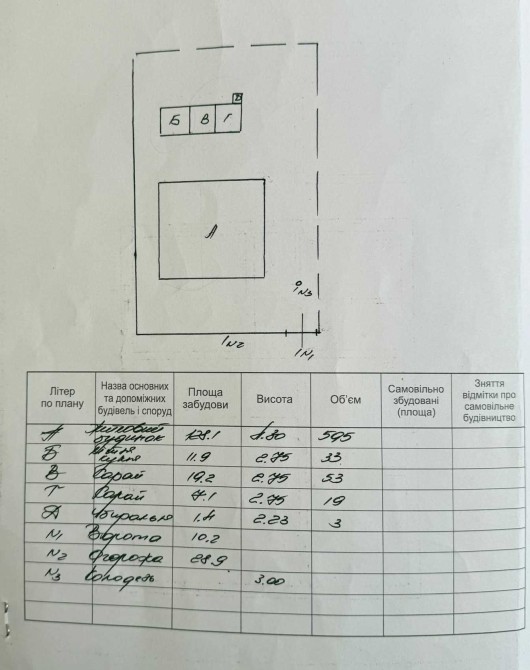 Д
Б В Г
А
N3
N2 N1
Літер по плану Назва основних та допоміжних будівель і споруд Площа забудови Висота Об'єм Самовільно збудовані (площа) Зняття відмітки про самовільне будівництво
А Житловий будинок 128.1 595
Б Літня кухня 11.9 2.75 33
В Сарай 19.2 2.75 53
Г Сарай 7.1 2.75 19
Д Убиральня 1.4 2.23 3
N1 Ворота 10.2
N2 Огорожа 28.9
N3 Колодязь 3.00